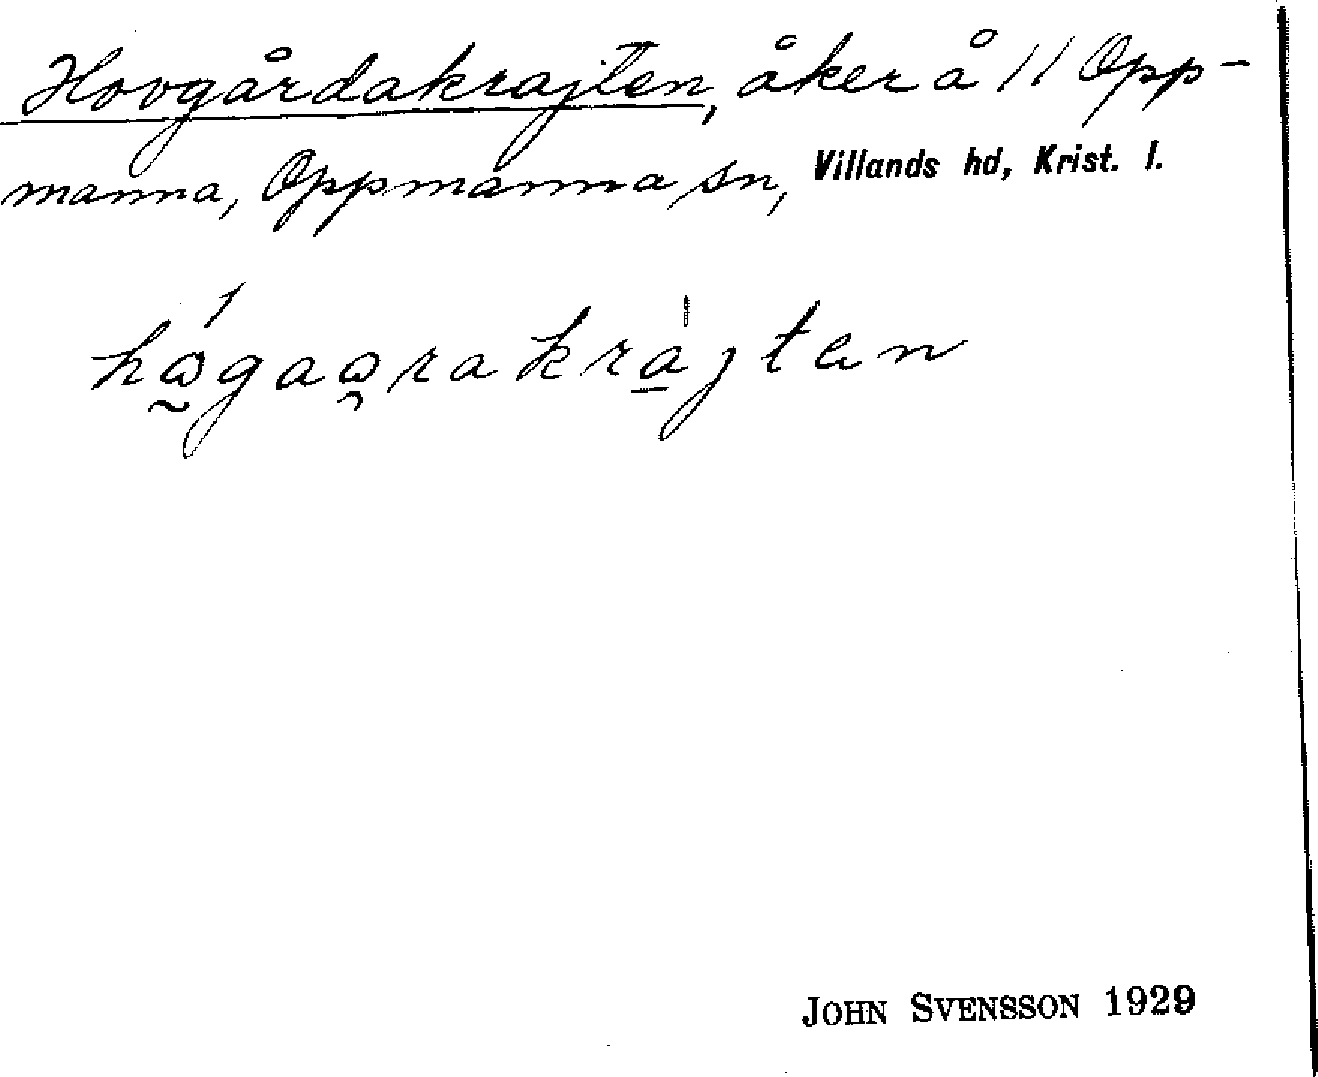 Hovgårdakrajten, åker å 11 Opp-
manna, Oppmanna sn, Villands hd, Krist. l.
JOHN SVENSSON 1929